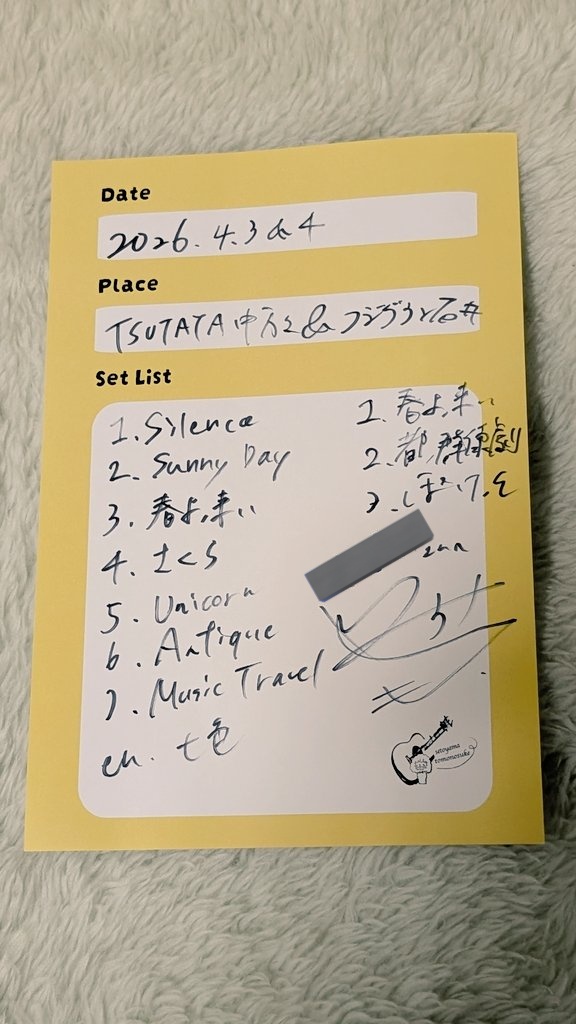 Date
2026.4.3&4
Place
TSUTAYA 中万々 & フジグラン石井
Set List
1. Silence
2. Sunny Day
3. 春よ、来い
4. さくら
5. Unicorn
6. Antique
7. Music Travel
en. 七色
1. 春よ、来い
2. 都 群
3.
setoyama
tomonosuke